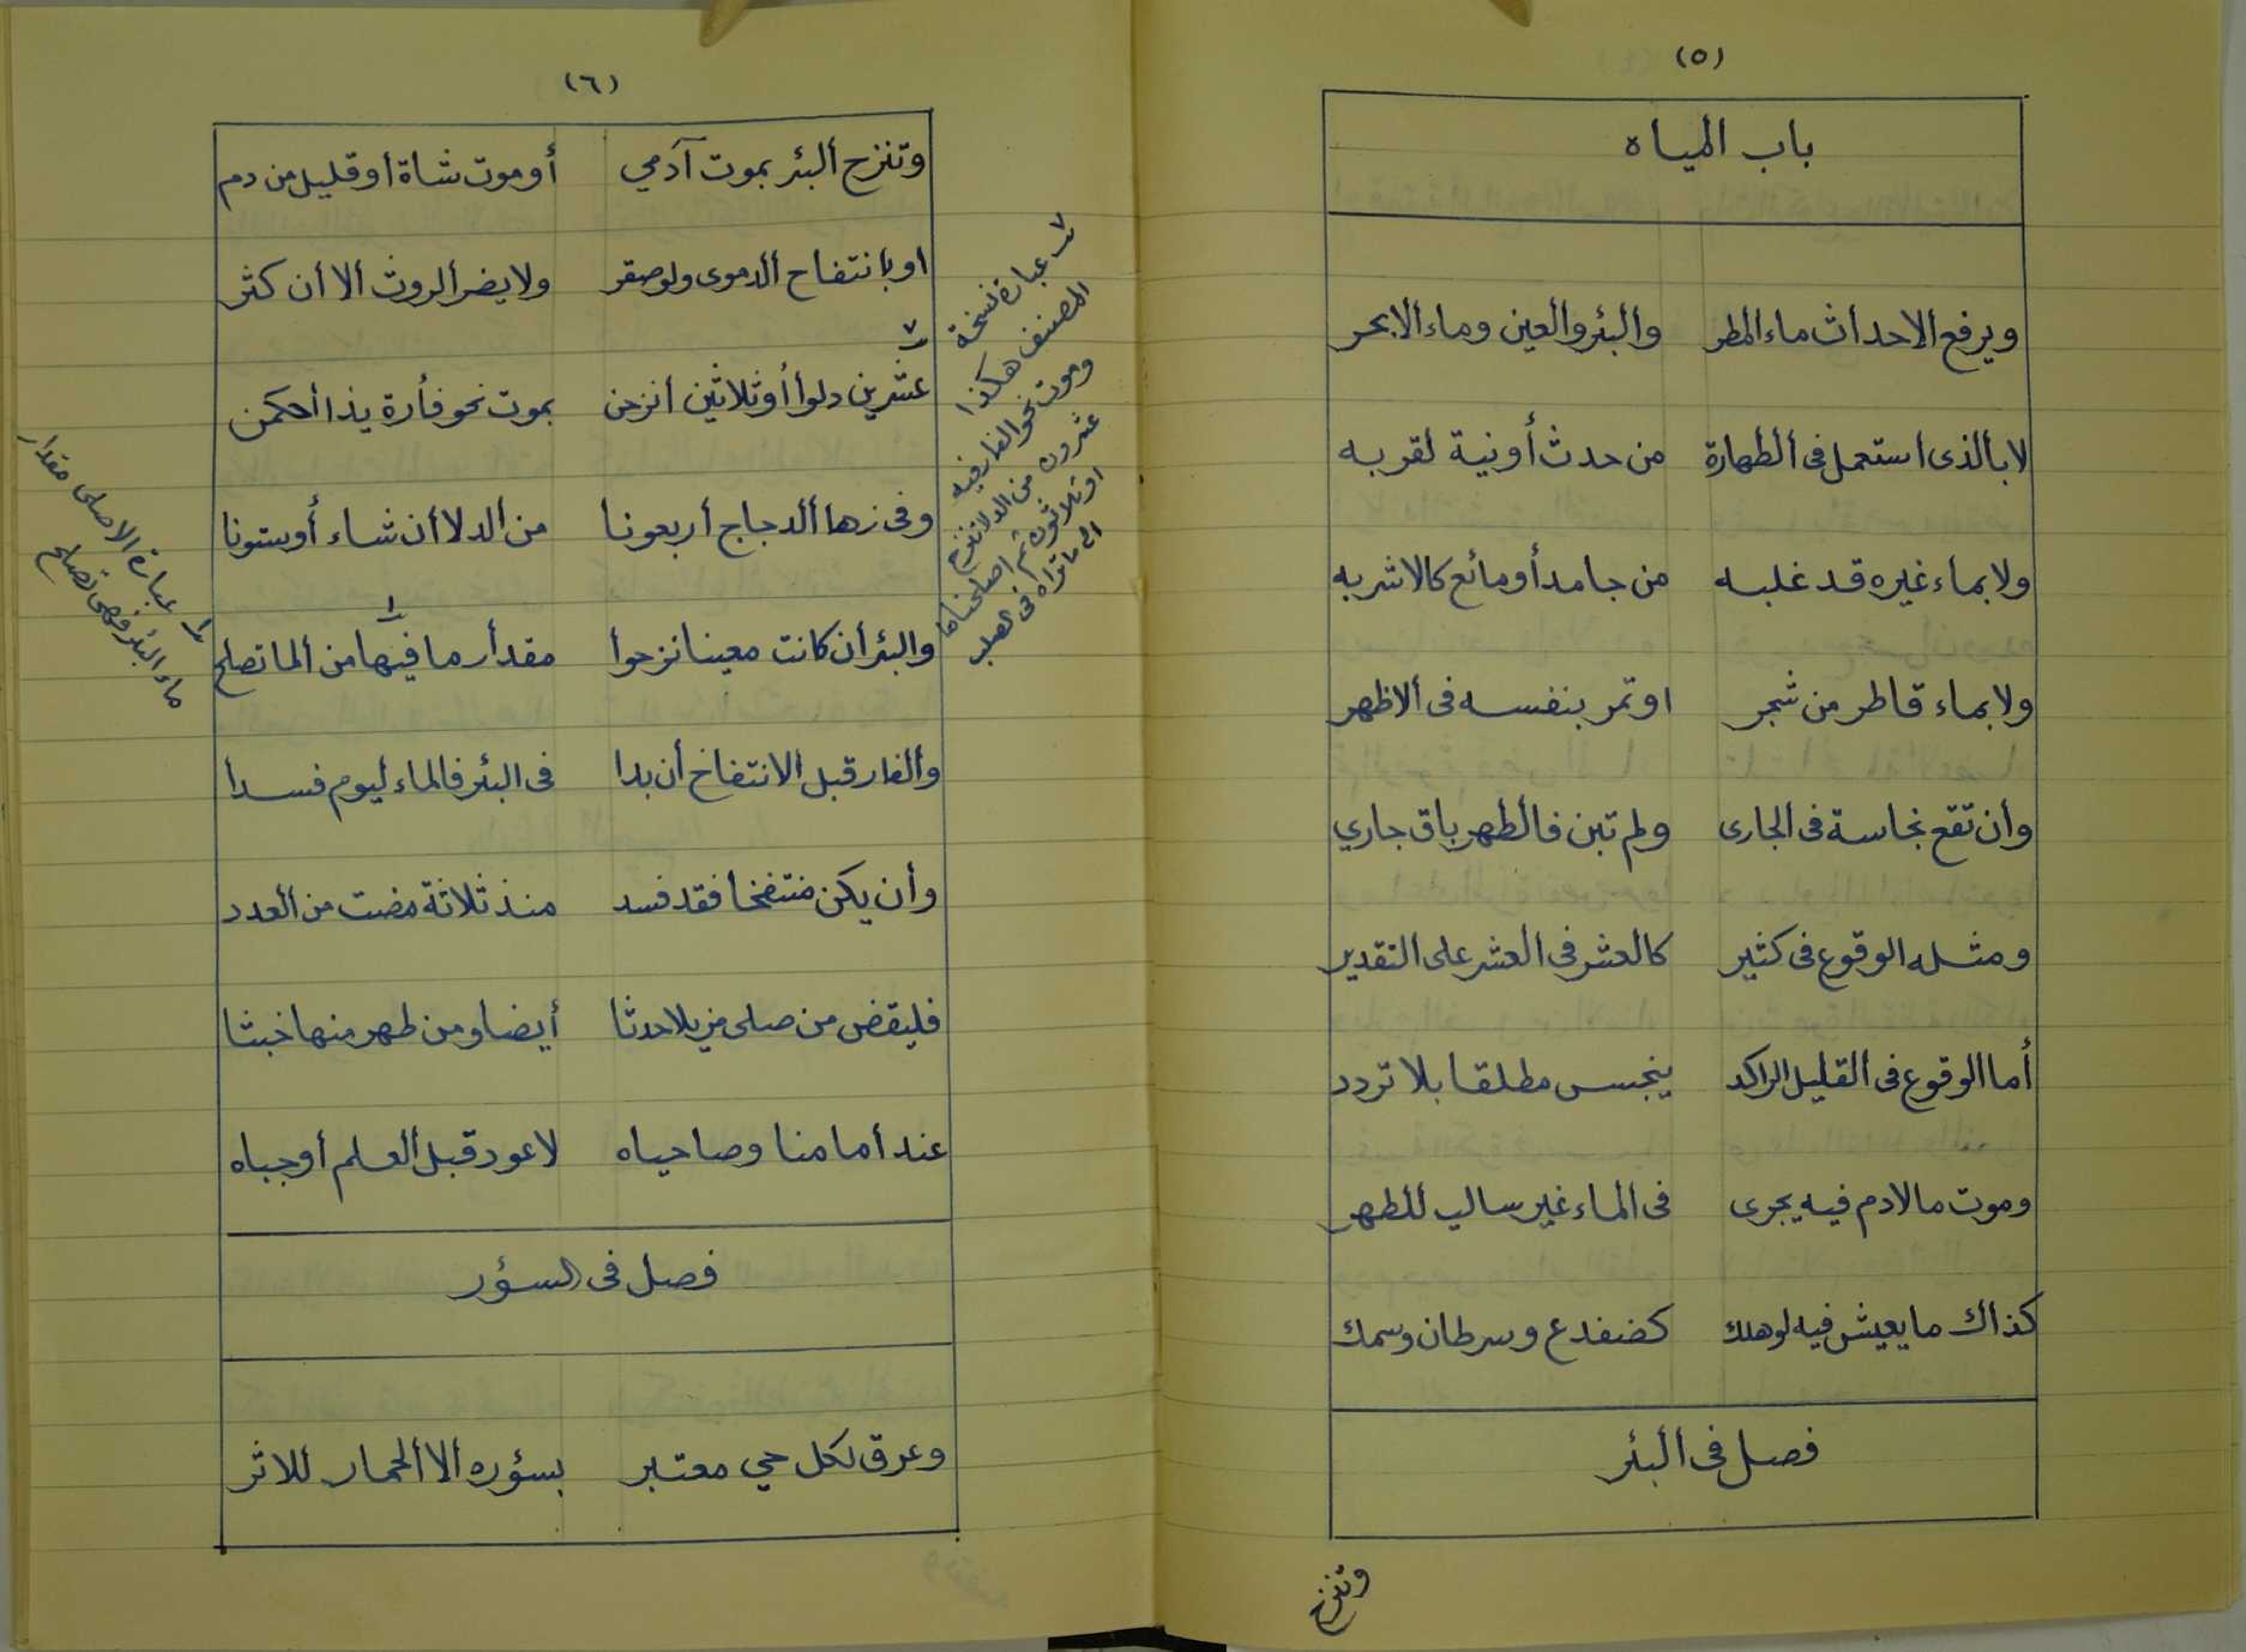 (٥)
باب المياه
ويرفع الاحداث ماء المطر والبئر والعين وماء الابحر
لا بالذى استعمل فى الطهارة من حدث أونية لقربه
ولا بماء غيره قد غلبه من جامد أو مائع كالاشربه
ولا بماء قاطر من شجر او ثمر بنفسه فى الاظهر
وان تقع نجاسة فى الجارى ولم تبن فالطهر باق جاري
ومثله الوقوع فى كثير كالعشر فى العشر على التقدير
أما الوقوع فى القليل الراكد ينجس مطلقا بلا تردد
وموت مالادم فيه يجرى فى الماء غير سالب للطهر
كذاك ما يعيش فيه لو هلك كضفدع وسرطان وسمك
فصل فى البئر
وتنزح
(٦)
وتنزح البئر بموت آدمي أو موت شاة او قليل من دم
او بانتفاخ الدموى ولو صغر ولا يضر الروث الا أن كثر
عشرين دلوا أو ثلاثين انزحن بموت نحو فأرة يذا أحكمن
وفى زها الدجاج أربعونا من الدلا ان شاء أو ستونا
والبئر أن كانت معينا نزحوا مقدار ما فيها من الما تصلح
والفار قبل الانتفاخ أن بدا فى البئر فالماء ليوم فسدا
وأن يكن منتفخا فقد فسد منذ ثلاثة مضت من العدد
فليقض من صلى مزيلا حدثا أيضا ومن طهر منها خبثا
عند أمامنا وصاحباه لا عود قبل العلم أوجباه
فصل فى السؤر
وعرق لكل حي معتبر بسؤره الا الحمار للاثر
٢ عبارة نسخة
المصنف هكذا
وموت نحو الفار فيه
عشرون من الدلا تنزح
او ثلاثون ثم اصلحناها
الى ما تراه فى الصلب
١ عبارة الاصلى مقدار
ماء البئر فهى تصلح